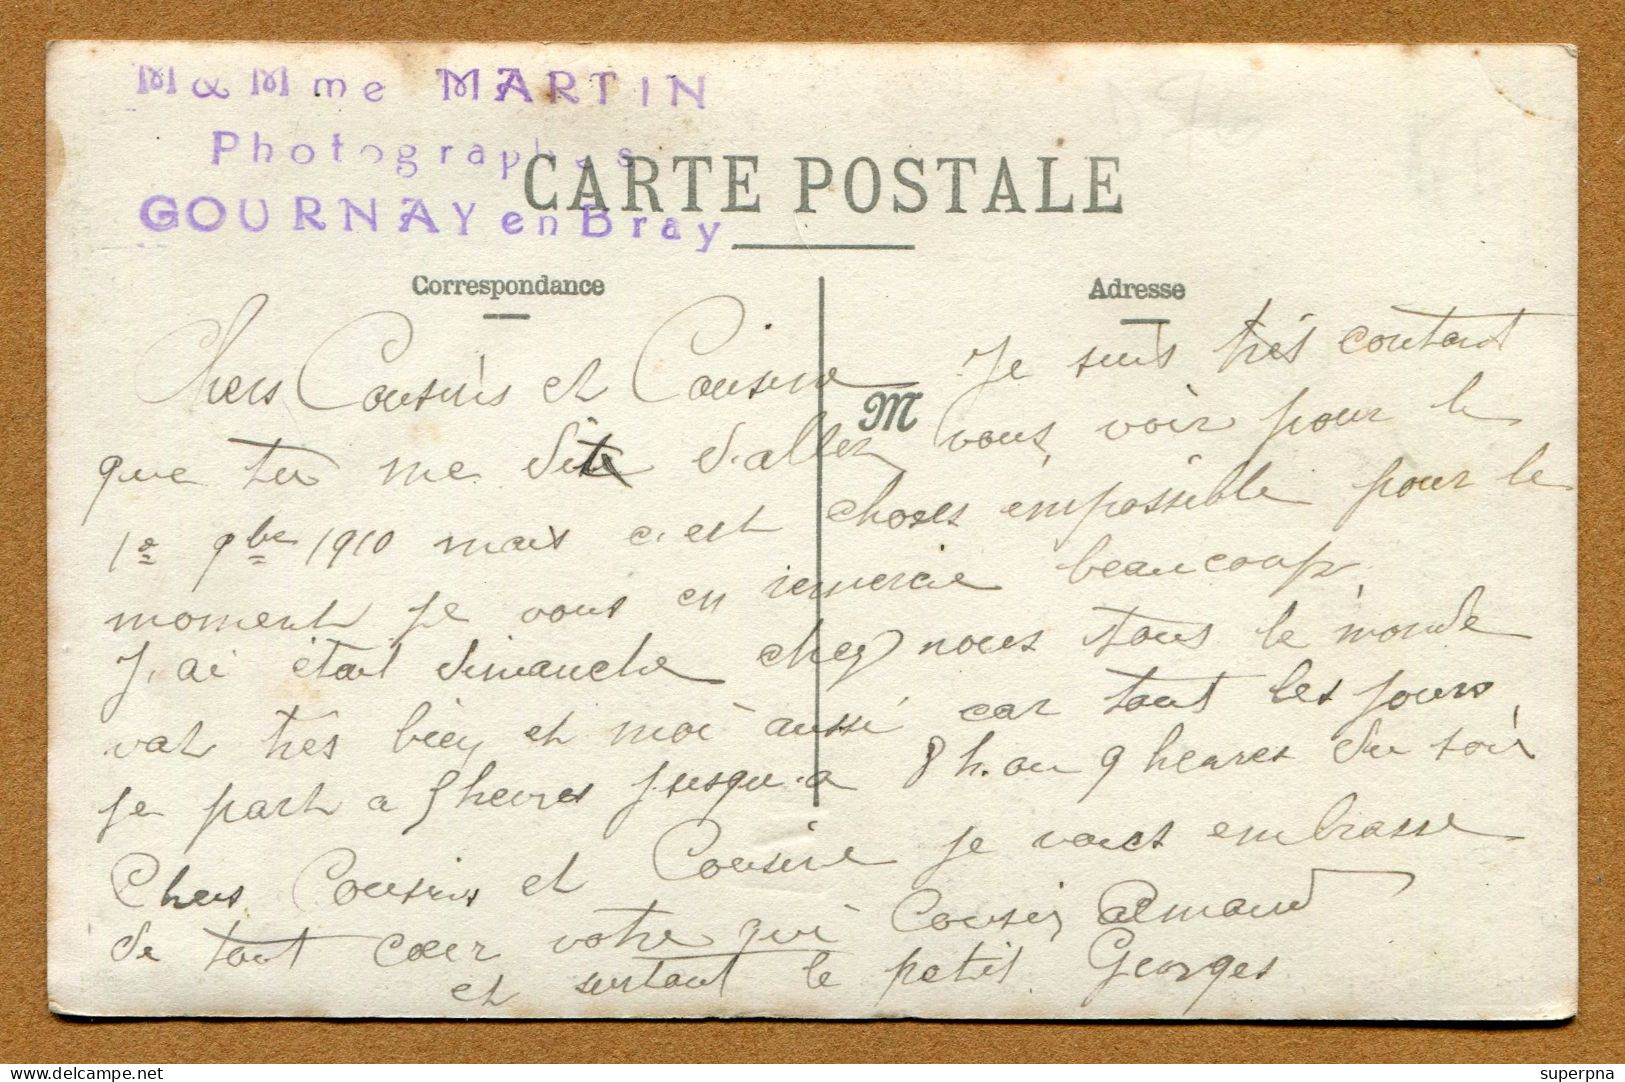 M & Mme MARTIN
Photographes
GOURNAY en Bray
CARTE POSTALE
Correspondance
Adresse
M
Chers Cousins et Cousine Je suis très contant
que tu me dite d'allez vous voir pour le
1e 9bre 1910 mais c'est choses impossible pour le
moment je vous en remercie beaucoup
J'ai était dimanche chez nous tous le monde
vat très bien et moi aussi car tout les jours
je part a 5 heures jusqu'a 8 h. ou 9 heures du soir
Chers Cousins et Cousine je vous embrasse
de tout cœur votre Cousin Armand
et surtout le petit Georges
superpna